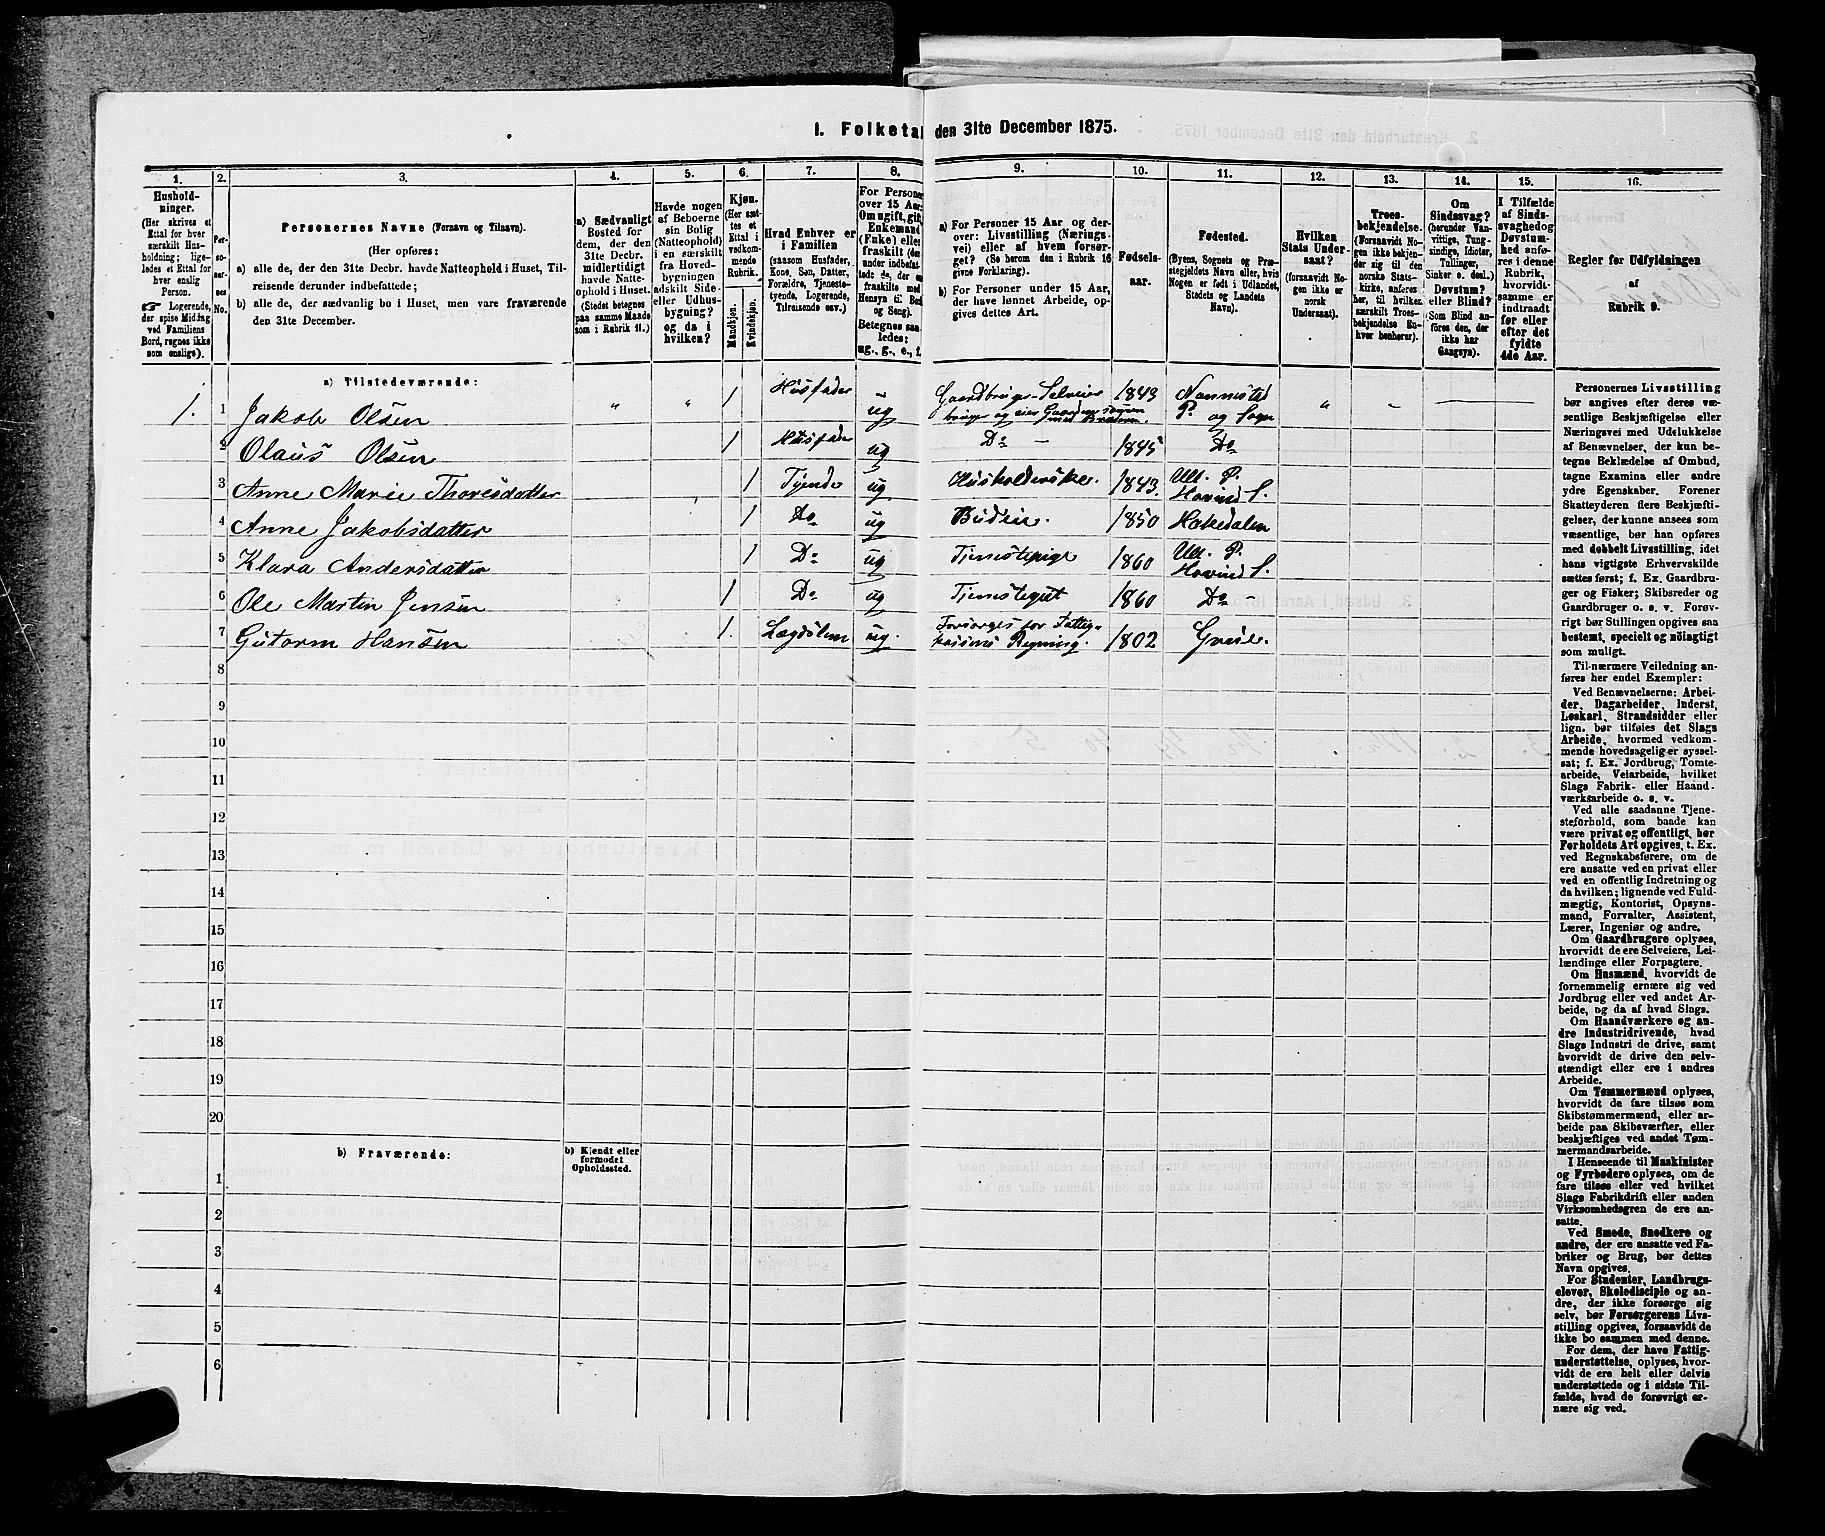 1. Folketal den 31te December 1875.
1. 2. 3. 4. 5. 6. 7. 8. 9. 10. 11. 12. 13. 14. 15. 16.
Hushold-
ninger.
(Her skrives et
Ettal for hver
særskilt Hus-
holdning; lige-
ledes et Ettal for
hver enslig
Person.
☞ Logerende,
der spise Middag
ved Familiens
Bord, regnes ikke
som enslige).
Per-
soner-
nes
No.
Personernes Navne (Fornavn og Tilnavn).
(Her opføres:
a) alle de, der den 31te Decbr. havde Natteophold i Huset, Til-
reisende derunder indbefattede;
b) alle de, der sædvanlig bo i Huset, men vare fraværende
den 31te December.
a) Sædvanligt
Bosted for
dem, der den
31te Decbr.
midlertidigt
havde Natte-
ophold i Huset.
(Stedet betegnes
paa samme Maade
som i Rubrik 11.)
Havde nogen
af Beboerne
sin Bolig
(Natteophold)
i en særskilt
fra Hoved-
bygningen
adskilt Side-
eller Udhus-
bygning?
og da i
hvilken?
Kjøn.
(Her sæt-
tes et
Ettal i
vedkom-
mende
Rubrik.
Mandkjøn.
Kvindekjøn.
Hvad Enhver er
i Familien
(saasom Husfader,
Kone, Søn, Datter,
Forældre, Tjeneste-
tyende, Logerende,
Tilreisende osv.)
For Personer
over 15 Aar:
Om ugift, gift,
Enkemand
(Enke) eller
fraskilt (der-
under indbefat-
tede de, der ere
fraskilte med
Hensyn til Bord
og Seng).
Betegnes saa-
ledes:
ug., g., e., f.
a) For Personer 15 Aar og der-
over: Livsstilling (Nærings-
vei) eller af hvem forsør-
get? (Se herom den i Rubrik 16
givne Forklaring).
b) For Personer under 15 Aar,
der have lønnet Arbeide, op-
gives dettes Art.
Fødsels-
aar.
Fødested.
(Byens, Sognets og Præ-
stegjeldets Navn eller, hvis
Nogen er født i Udlandet,
Stedets og Landets
Navn).
Hvilken
Stats Under-
saat?
(forsaavidt No-
gen ikke er
norsk
Undersaat).
Troes-
bekjendelse.
(Forsaavidt No-
gen ikke bekjen-
der sig til den
norske Stats-
kirke, anføres
her, til hvilken
særskilt Troes-
bekjendelse En-
hver henhører).
Om
Sindssvag?
(herunder Van-
vittige, Tung-
sindige, Idioter,
Tullinger,
Sinker o. desl.,)
Døvstum?
eller Blind?
(Som Blind an-
føres den, der
ikke har
Gangsyn).
I Tilfælde
af Sinds-
svaghed og
Døvstum-
hed anfø-
res i denne
Rubrik,
hvorvidt
samme er
indtraadt
før eller
efter det
fyldte
4de Aar.
Regler for Udfyldningen
af
Rubrik 9.
a) Tilstedeværende:
1. 1 Jakob Olsen „ „ 1 Husfader ug Gaardbruger Selveier 1843 P. og Sogn „ „
2 Olaus Olsen 1 Husfader ug Do - 1845 Do
3 Anne Marie Thoresdatter 1 Tyende ug Husholderske. 1843. Ull. P. Hovind S.
4 Anne Jakobsdatter 1 Do ug Budeie. 1850 Hakedalen
5 Klara Andersdatter 1 Do ug Tjenestepige 1860 Ull. P. Hovind S.
6 Ole Martin Jensen 1 Do ug Tjenestegut 1860 Do -
7 Gutorm Hansen 1. Lægdslem ug. Forsørges for Fattig- 1802
8
9
10
11
12
13
14
15
16
17
18
19
20
b) Fraværende:
b) Kjendt eller
formodet
Opholdssted.
1
2
3
4
5
6
Personernes Livsstilling
bør angives efter deres væ-
sentlige Beskjæftigelse eller
Næringsvei med Udelukkelse
af Benævnelser, der kun be-
tegne Beklædelse af Ombud,
tagne Examina eller andre
ydre Egenskaber. Forener
Skatteyderen flere Beskjæfti-
gelser, der kunne ansees som
væsentlige, bør han opføres
med dobbelt Livsstilling, idet
hans vigtigste Erhvervskilde
sættes først; f. Ex. Gaardbru-
ger og Fisker; Skibsreder og
Gaardbruger o. s. v. Forøv-
rigt bør Stillingen opgives saa
bestemt, specielt og nøiagtigt
som muligt.
Til nærmere Veiledning an-
føres her endel Exempler:
Ved Benævnelserne: Arbei-
der, Dagarbeider, Inderst,
Løskarl, Strandsidder eller
lign. bør tilføies det Slags
Arbeide, hvormed vedkom-
mende hovedsagelig er syssel-
sat; f. Ex. Jordbrug, Tomte-
arbeide, Veiarbeide, hvilket
Slags Fabrik- eller Haand-
værksarbeide o. s. v.
Ved alle saadanne Tjene-
steforhold, som baade kan
være privat og offentligt, bør
Forholdets Art opgives, t. Ex.
ved Regnskabsførere, om de
ere ansatte ved en privat eller
ved en offentlig Indretning og
da hvilken; lignende ved Fuld-
mægtig, Kontorist, Opsyns-
mand, Forvalter, Assistent,
Lærer, Ingeniør og andre.
Om Gaardbrugere oplyses,
hvorvidt de ere Selveiere, Lei-
lændinge eller Forpagtere.
Om Husmænd, hvorvidt de
fornemmelig ernære sig ved
Jordbrug eller ved andet Ar-
beide, og da af hvad Slags.
Om Haandværkere og an-
dre Industridrivende, hvad
Slags Industri de drive, samt
hvorvidt de drive den selv-
stændigt eller ere i andres
Arbeide.
Om Tømmermænd oplyses,
hvorvidt de fare tilsøs som
Skibstømmermænd, eller ar-
beide paa Skibsværfter, eller
beskjæftiges ved andet Tøm-
mermandsarbeide.
I Henseende til Maskinister
og Fyrbødere oplyses, om de
fare tilsøs eller ved hvilket
Slags Fabrikdrift eller anden
Virksomhedsgren de ere an-
satte.
Ved Smede, Snedkere og
andre, der ere ansatte ved Fa-
briker og Brug, bør dettes
Navn opgives.
For Studenter, Landbrugs-
elever, Skoledisciple og an-
dre, der ikke forsørge sig
selv, bør Forsørgerens Livs-
stilling opgives, forsaavidt de
ikke bo sammen med denne.
For dem, der have Fattig-
understøttelse, oplyses, hvor-
vidt de ere helt eller delvis
understøttede og i sidste Til-
fælde, hvad de forøvrigt er-
nære sig ved.